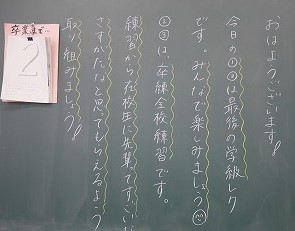 卒業まで…
2
おはようございます!
今日の①②は最後の学級レク
です。みんなで楽しみましょう☺
②③は、卒練全校練習です。
練習から在校生に先輩てすごいな
さすがだなと思ってもらえるよう
取り組みましょう!